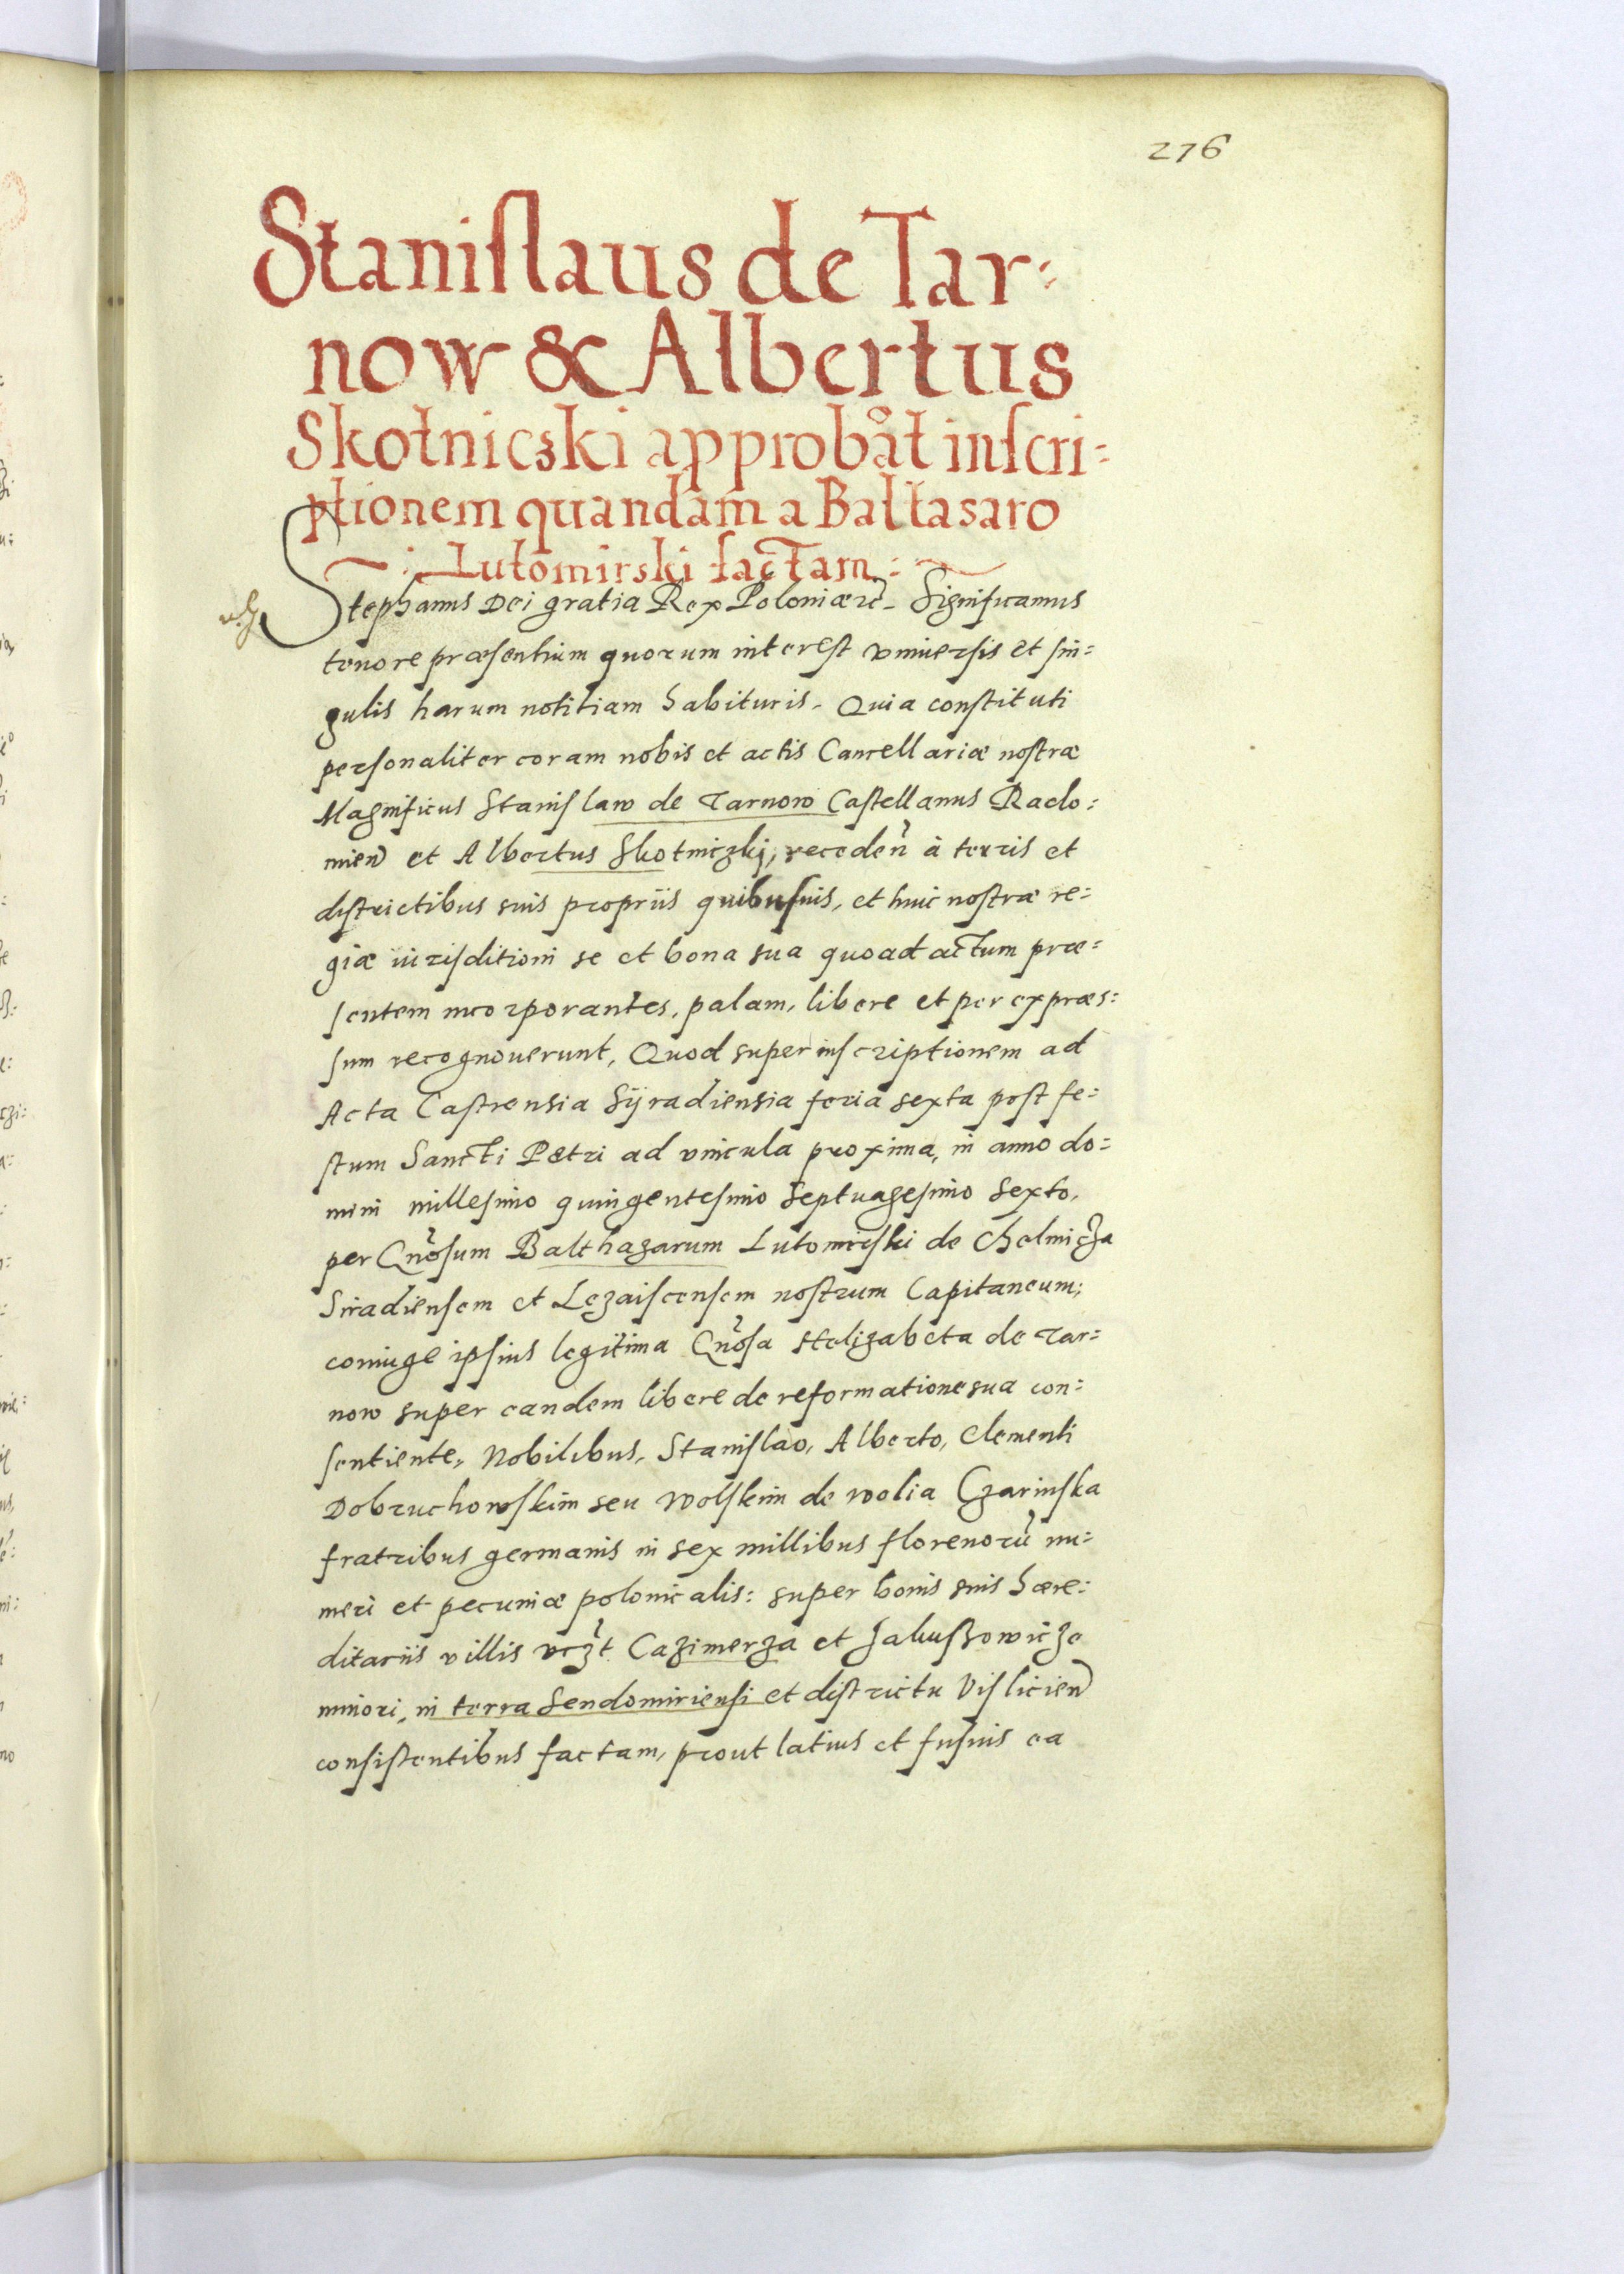 276
Stanislaus de Tar=
now & Albertus
Skotnicski approbãt inscri=
ptionem quandam a Baltasaro
Lutomirski factam
Stephanus Dei gratia Rex Poloniæ Significamus
tenore præsentium quorum interest vniuersis et sin=
gulis harum notitiam habituris. Quia constituti
personaliter coram nobis et actis Cancellariæ nostræ
Magnificus Stanislaw de Tarnow Castellanus Rado=
mien et Albertus Skotniczkj, receden à terris et
districtibus suis propriis quibusuis, et huic nostræ re=
giæ iurisditioni se et bona sua quoad actum præ=
sentem incorporantes, palam, libere et per expræs=
sum recognouerunt, Quod super inscriptionem ad
Acta Castrensia Sijradiensia feria sexta post fe=
stum Sancti Petri ad vincula proxima, in anno do=
mini millesimo quingentesimo Septuagesimo Sexto,
per Gnosum Balthazarum Lutomirski de Chelmicza
Siradiensem et Lezaiscensem nostrum Capitaneum;
coniuge ipsius legitima Gnosa Helizabeta de Tar=
now super eandem libere de reformatione sua con=
sentiente, Nobilibus, Stanislao, Alberto, Clementi
Dobruchowskim seu Wolskim de wolia Czarinska
fratribus germanis in sex millibus florenorũ nu=
meri et pecuniæ polonicalis: super bonis suis hære=
ditariis villis vczt Cazimerza et Jakuszowicze
minori, in terra Sendomiriensi et districtu Vislicien
consistentibus factam, prout latius et fusius ea